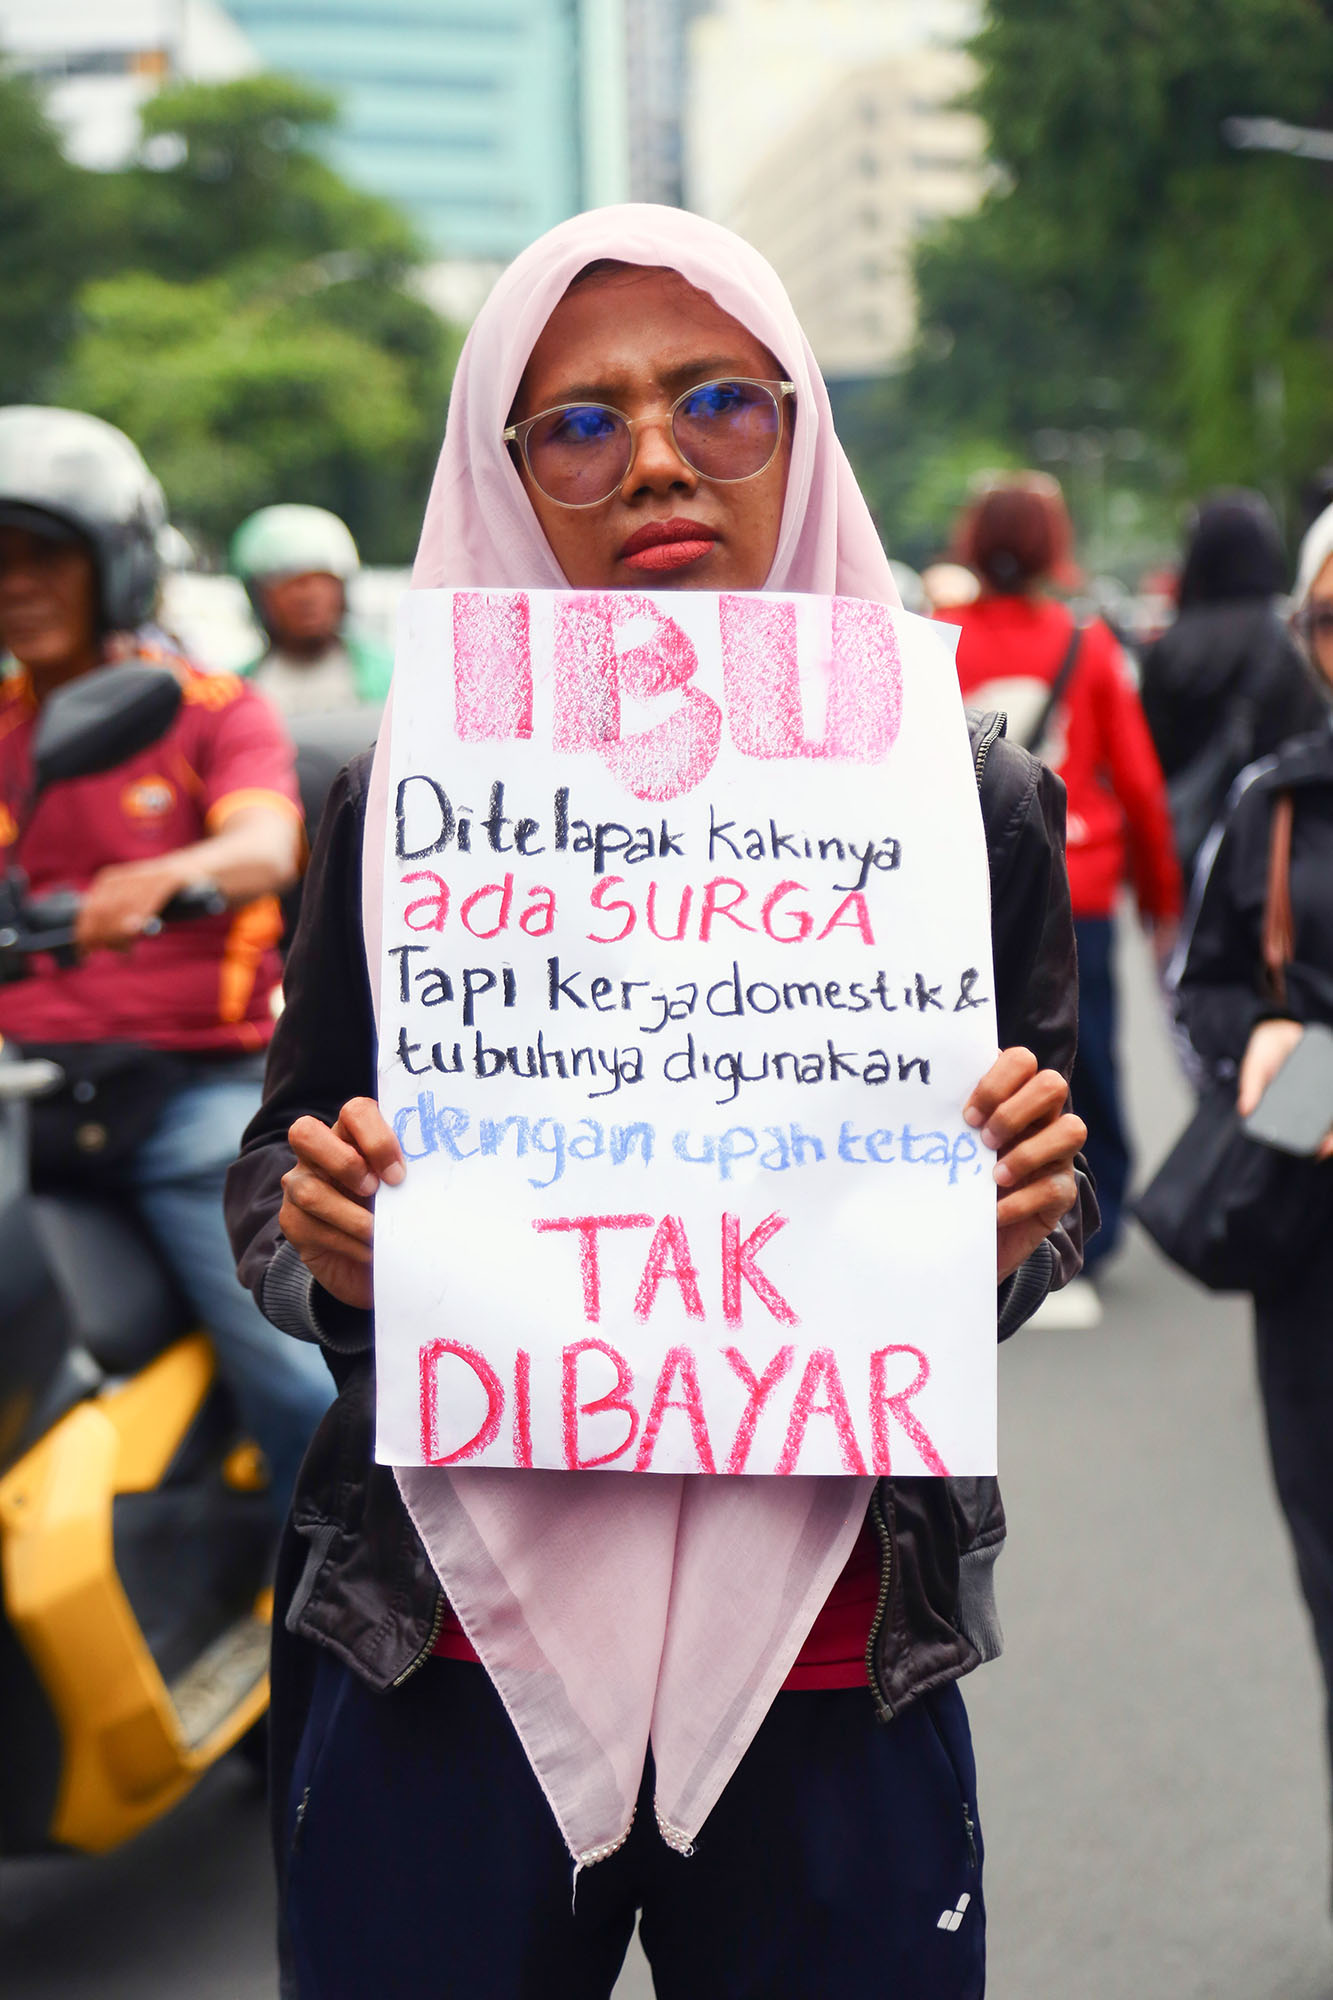 IBU
Ditelapak kakinya
ada SURGA
Tapi kerja domestik &
tubuhnya digunakan
dengan upah tetap,
TAK
DIBAYAR